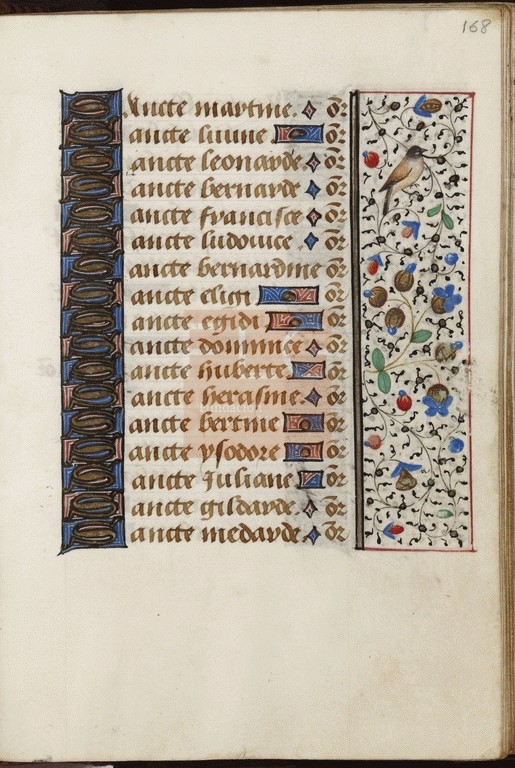 168
Sancte martine. or̄
Sancte liuine or̄
Sancte leonarde or̄
Sancte bernarde or̄
Sancte francisce or̄
Sancte ludouice or̄
Sancte bernardine or̄
Sancte eligi or̄
Sancte egidi or̄
Sancte dominice or̄
Sancte huberte or̄
Sancte herasme or̄
Sancte bertine or̄
Sancte ysodore or̄
Sancte Juliane or̄
Sancte gildarde or̄
Sancte medarde or̄